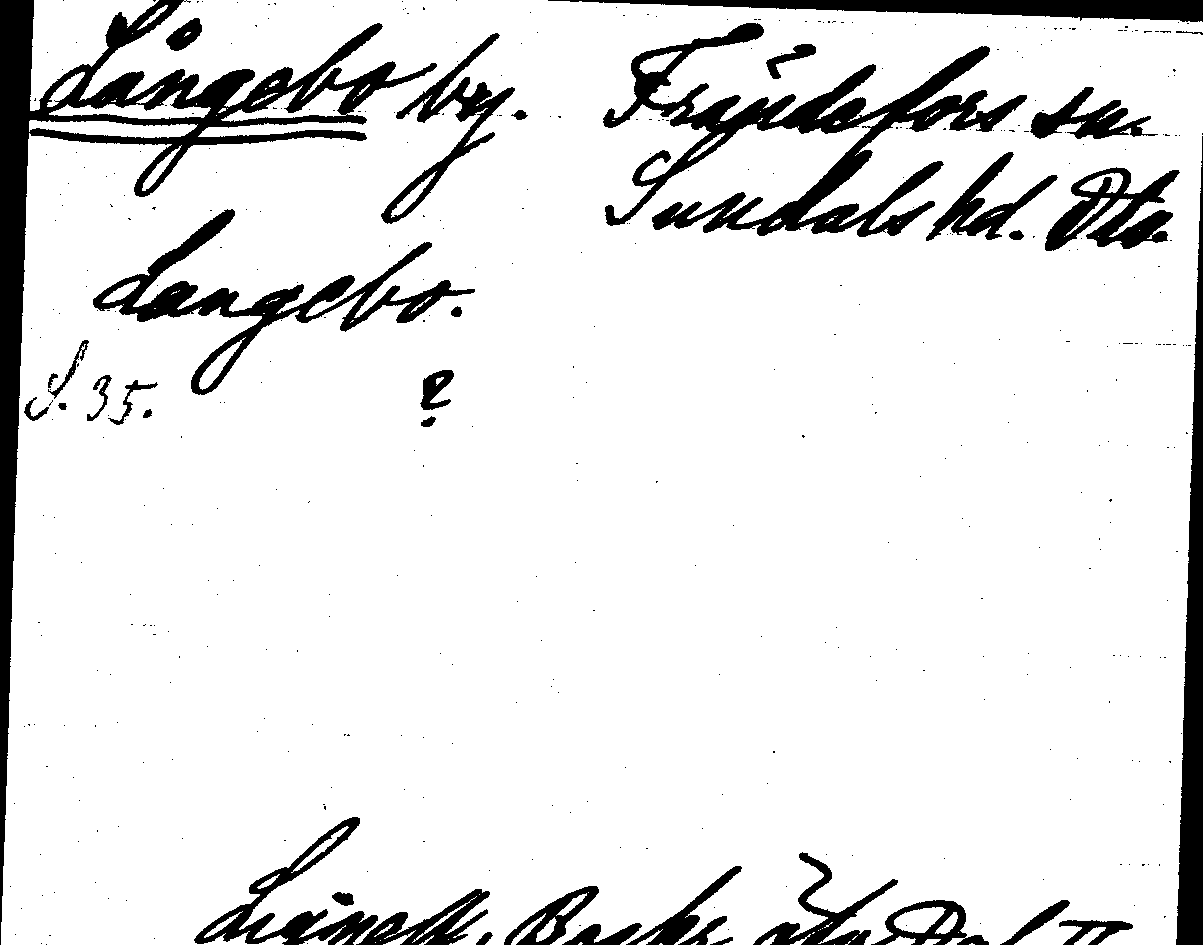 Långebo by. Frändefors sn.
Sundals hd. Dls.
Langebo.
S. 35. ?
Lignell, Beskr. Dal II